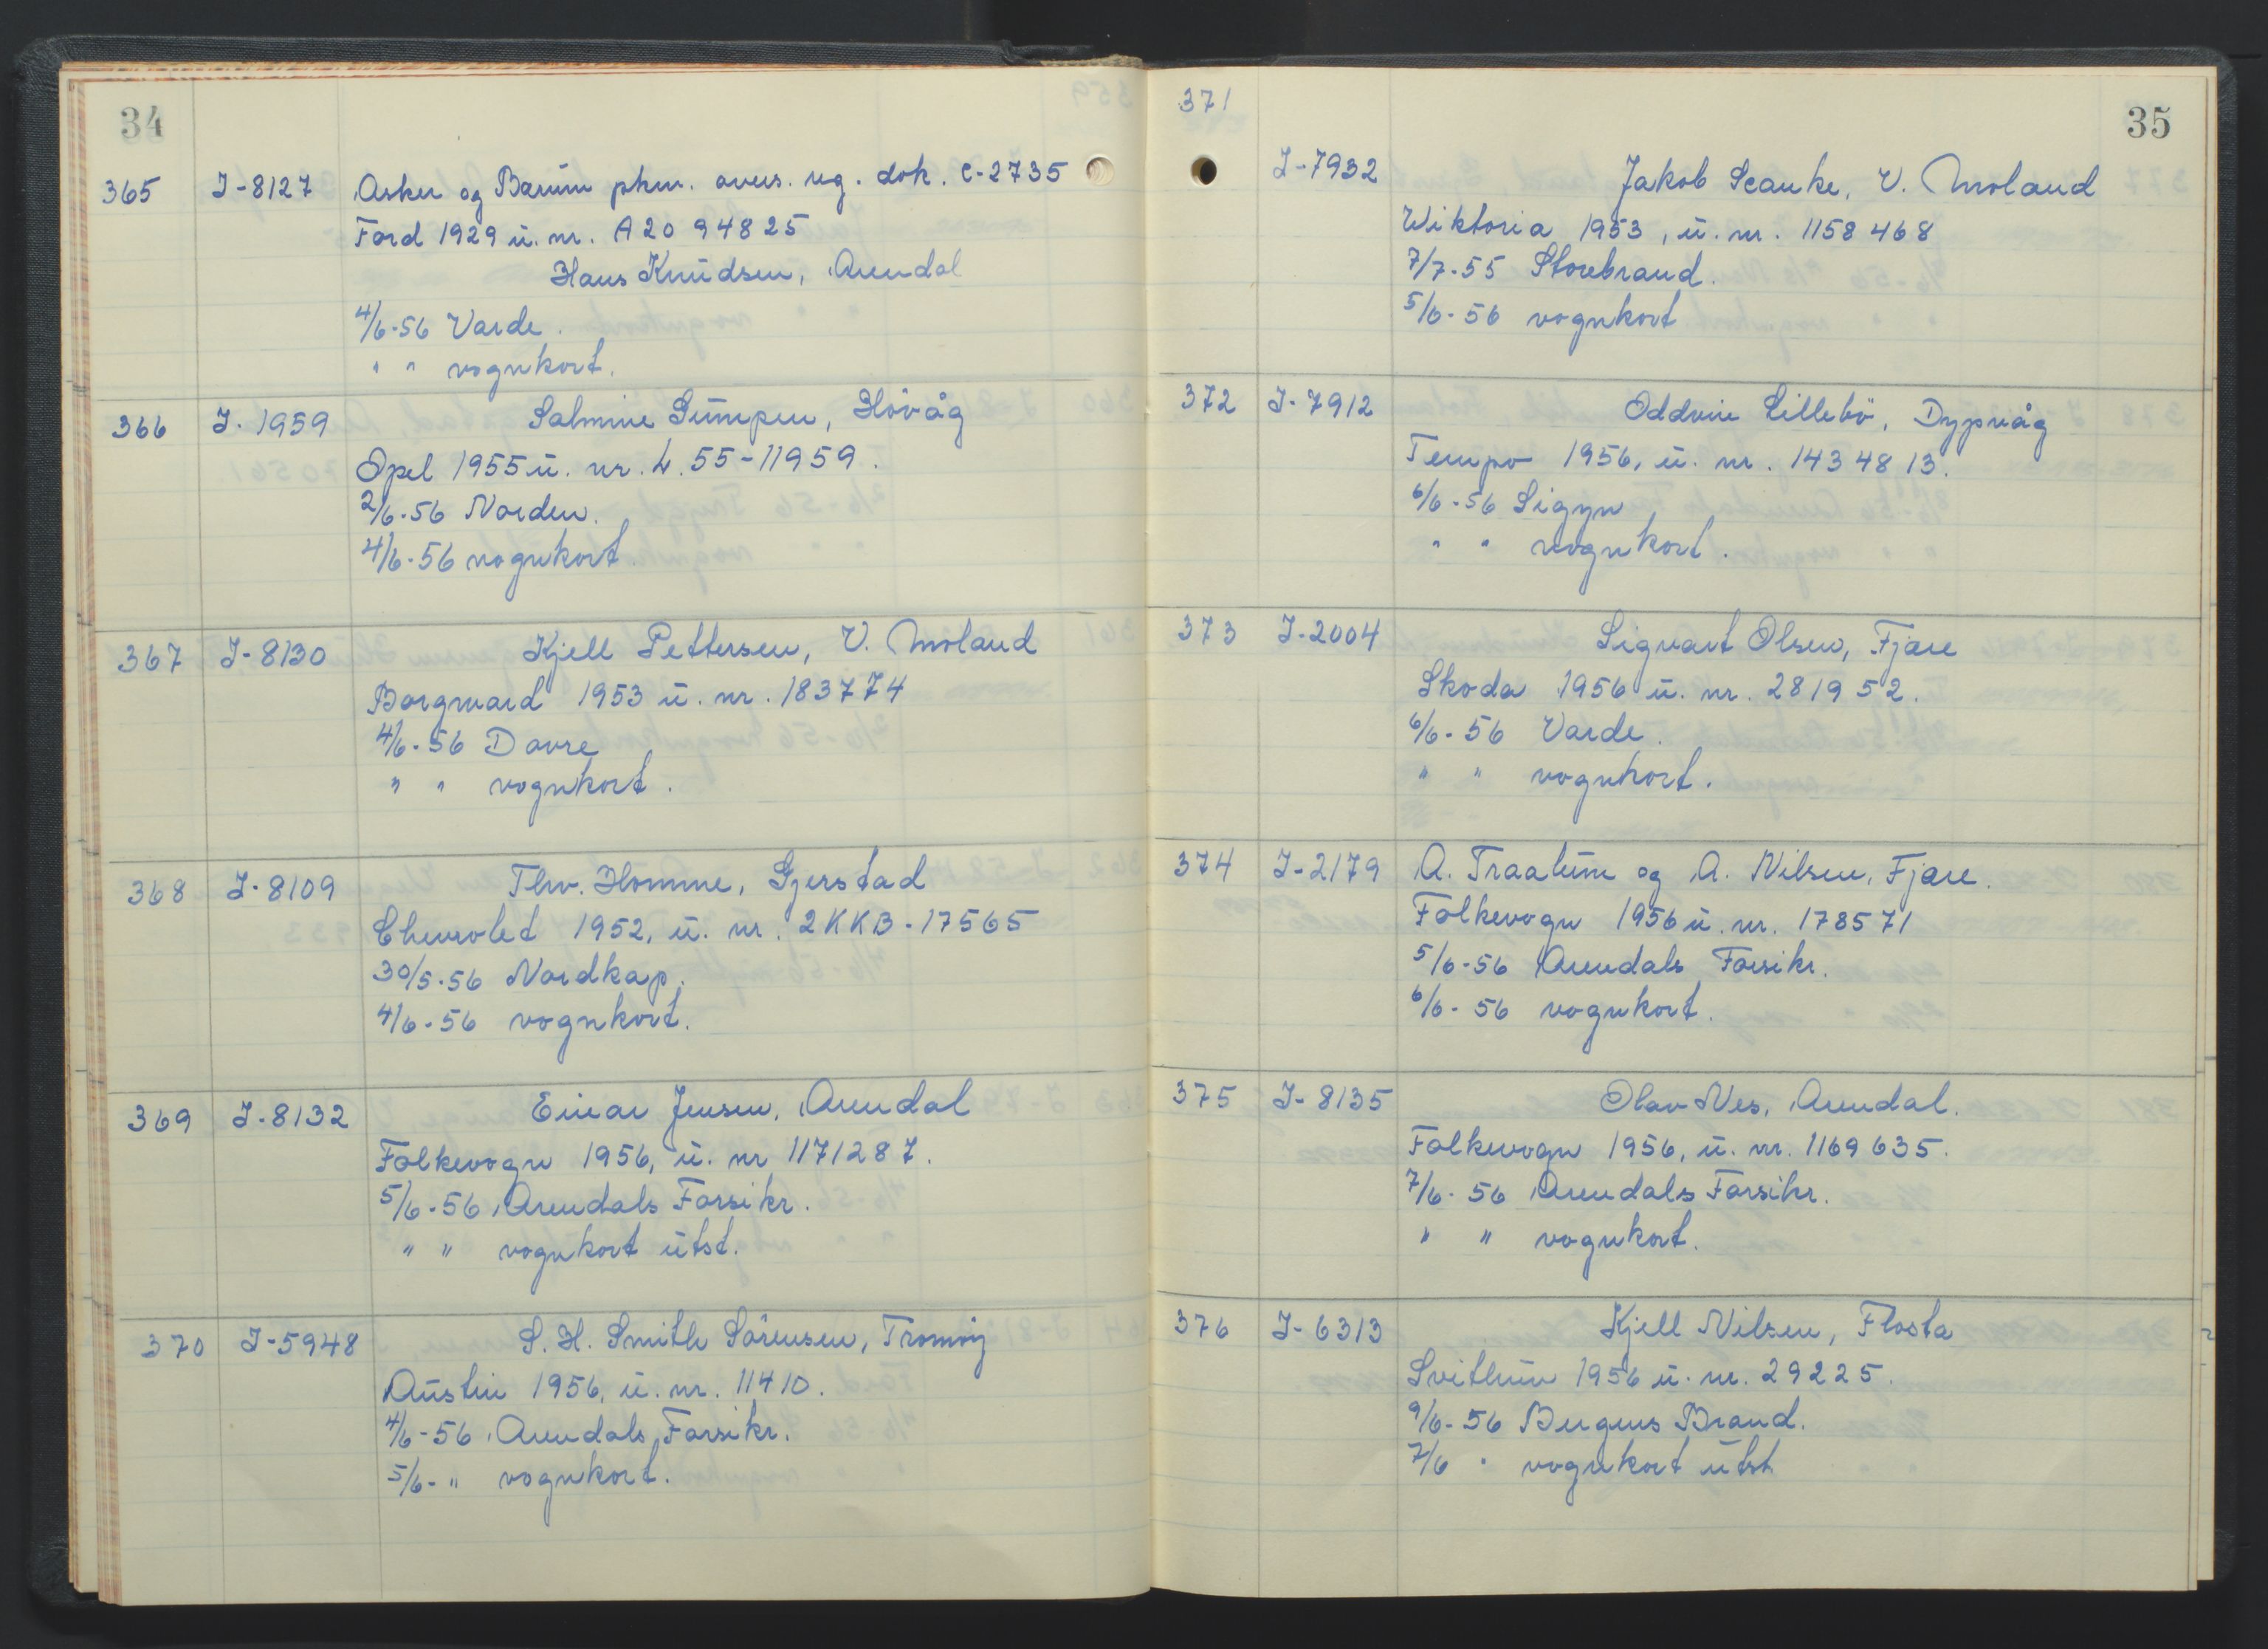 34
365 I-8127 Asker og Bærum pkm. overs. reg. dok. C-2735
Ford 1929 u. nr. A2094825
Hans Knudsen, Arendal
4/6-56 Varde.
" " vognkort.
366 I-1959 Salmine Gumpen, Hövåg
Opel 1955 u. nr. L.55-11959.
2/6-56 Norden.
4/6-56 vognkort.
367 I-8130 Kjell Pettersen, V. Moland
Borgward 1953 u. nr. 183774
4/6-56 Dovre
" " vognkort.
368 I-8109 Thv. Homme, Gjerstad
Chevrolet 1952, u. nr. 2KKB-17565
30/5-56 Nordkap.
4/6-56 vognkort.
369 I-8132 Einar Jensen, Arendal
Folkevogn 1956, u. nr 1171287.
5/6-56 Arendals Forsikr.
" " vognkort utst.
370 I-5948 S. H. Smith Sörensen, Tromöy
Austin 1956, u. nr. 11410.
4/6-56 Arendals Forsikr.
5/6- " vognkort.
35
371
I-7932 Jakob Scanke, V. Moland
Wiktoria 1953, u. nr. 1158468
7/7-55 Storebrand.
5/6-56 vognkort
372 I-7912 Oddvin Lillebö, Dypvåg
Tempo 1956, u. nr. 1434813.
6/6-56 Sigyn
" " vognkort.
373 I-2004 Sigvart Olsen, Fjære
Skoda 1956 u. nr. 281952.
6/6-56 Varde.
" " vognkort.
374 I-2179 A. Traalum og A. Nilsen, Fjære.
Folkevogn 1956 u. nr. 178571
5/6-56 Arendals Forsikr.
6/6-56 vognkort.
375 I-8135 Olav Nes, Arendal.
Folkevogn 1956, u. nr. 1169635.
7/6-56 Arendals Forsikr.
" " vognkort.
376 I-6313 Kjell Nilsen, Flosta
Svithun 1956 u. nr. 29225.
9/6-56 Bergens Brand.
7/6 " vognkort utst